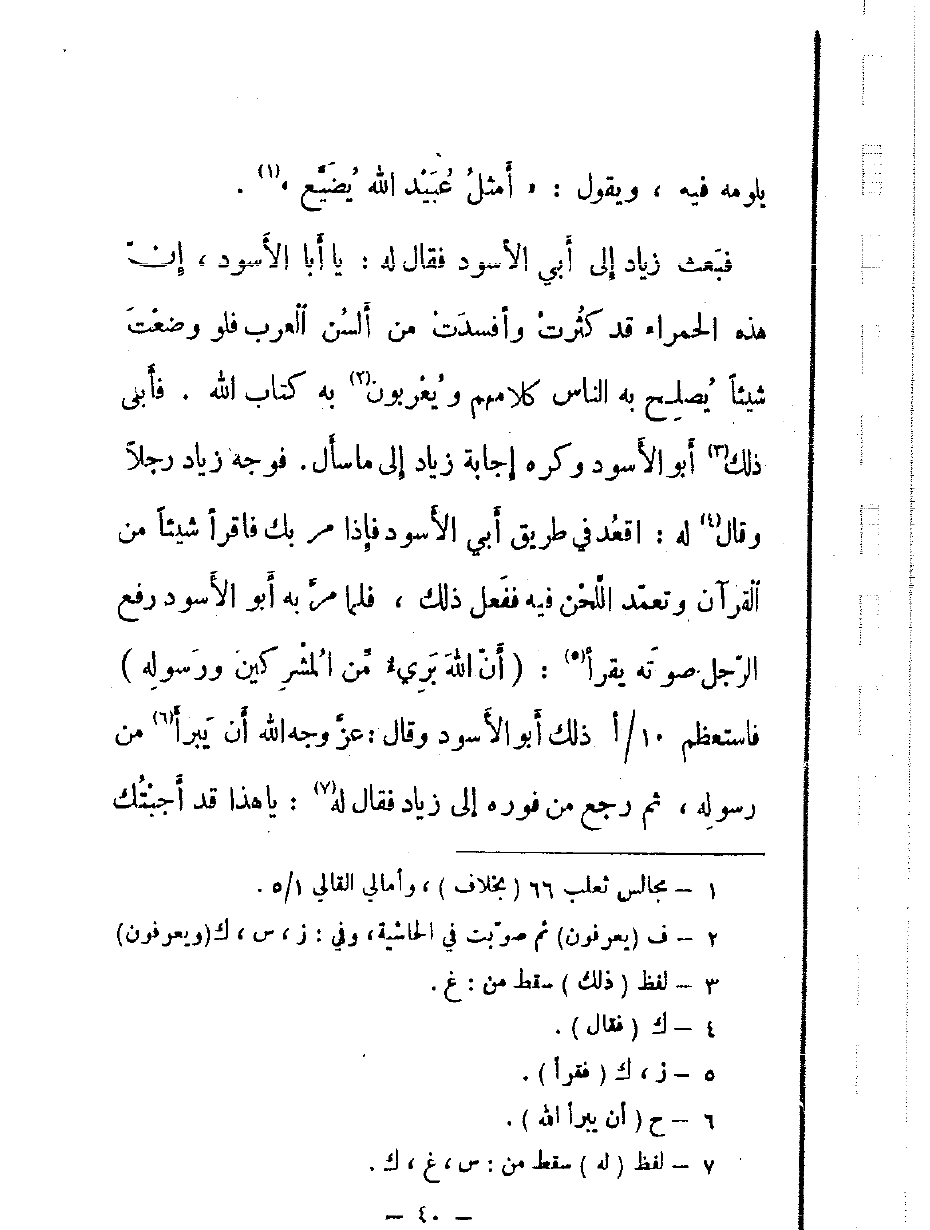 يلومه فيه ، ويقول : « أَمثلُ عُبَيْد الله يُضَيَّع »(١) .
فبَعث زياد إلى أَبي الأسود فقال له : يا أَبا الأَسود ، إِنّ
هذه الحمراء قد كثُرتْ وأفسدَتْ من أَلسُن العرب فلو وضعْتَ
شيئاً يُصلِح به الناس كلامهم ويُعْربون(٢) به كتاب الله . فأَبى
ذلك(٣) أَبو الأَسود وكره إِجابة زياد إلى ماسأَل. فوجه زياد رجلاً
وقال(٤) له : اقعُد في طريق أَبي الأَسود فإِذا مر بك فاقرأ شيئاً من
القرآن وتعمّد اللّحْن فيه ففَعل ذلك ، فلما مرَّ به أَبو الأَسود رفع
الرّجل صوتَه يقرأ(٥) : ( أَنّ اللهَ بَرِيءٌ مِّن المُشْرِكينَ ورَسولِهِ )
فاستعظم ١٠/أ ذلك أَبو الأَسود وقال : عزَّ وجه الله أَن يَبرأَ(٦) من
رسولِه ، ثم رجع من فوره إلى زياد فقال له(٧) : ياهذا قد أَجبْتُك
١ – مجالس ثعلب ٦٦ ( بخلاف ) ، وأمالي القالي ٥/١ .
٢ – ف (يعرفون) ثم صوّبت في الحاشية، وفي : ز ، س ، ك (ويعرفون)
٣ – لفظ ( ذلك ) سقط من : غ .
٤ – ك ( فقال ) .
٥ – ز ، ك ( فقرأ ) .
٦ – ح ( أن يبرأ الله ) .
٧ – لفظ ( له ) سقط من : س ، غ ، ك .
– ٤٠ –